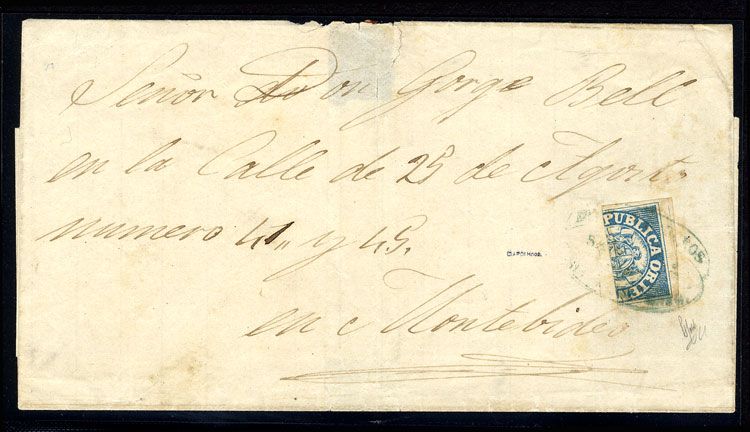 Señor Don Gorge Bell
en la Calle de 25 de Agosto
numero 41,, y 45.
en Montebideo
REPUBLICA ORIENTA